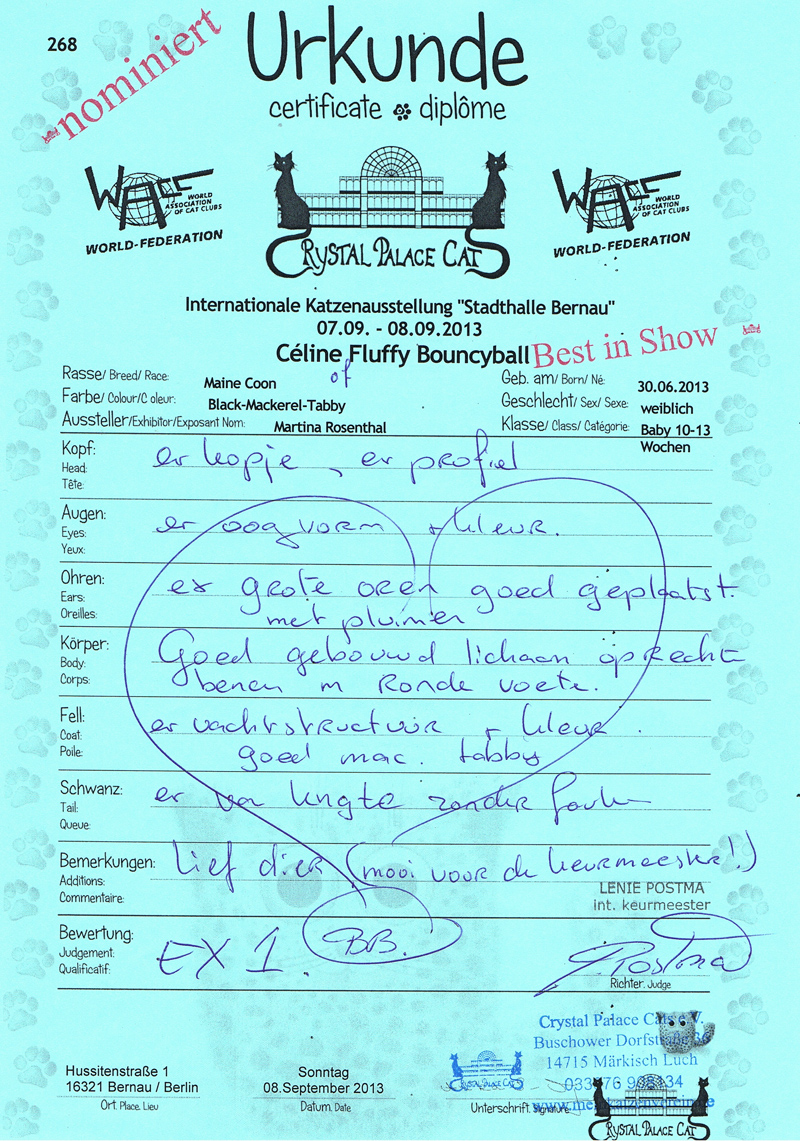 268
nominiert
Urkunde
certificate diplôme
WACC WORLD ASSOCIATION OF CAT CLUBS
WORLD-FEDERATION
CRYSTAL PALACE CATS
WACC WORLD ASSOCIATION OF CAT CLUBS
WORLD-FEDERATION
Internationale Katzenausstellung "Stadthalle Bernau"
07.09. - 08.09.2013
Céline Fluffy Bouncyball
of
Best in Show
Rasse/ Breed/ Race: Maine Coon
Geb. am/ Born/ Né: 30.06.2013
Farbe/ Colour/C oleur: Black-Mackerel-Tabby
Geschlecht/ Sex/ Sexe: weiblich
Aussteller/Exhibitor/Exposant Nom: Martina Rosenthal
Klasse/ Class/ Catégorie: Baby 10-13
Wochen
Kopf: er kopje, er profiel
Head:
Tête:
Augen: er oogvorm + kleur.
Eyes:
Yeux:
Ohren: er grote oren goed geplaatst.
Ears:
met pluimen
Oreilles:
Körper: Goed gebouwd lichaam oprecht
Body:
benen m ronde voete.
Corps:
Fell: er vachtstructuur + kleur.
Coat:
goed mac. tabby
Poile:
Schwanz: er van lengte zonder
Tail:
Queue:
Bemerkungen: lief dier (mooi voor de keurmeester!)
Additions:
Commentaire:
LENIE POSTMA
int. keurmeester
Bewertung: EX 1. BB.
Judgement:
Qualificatif:
Postma
Richter, Judge
Crystal Palace Cats e.V.
Buschower Dorfstraße
14715 Märkisch Luch
Hussitenstraße 1
16321 Bernau / Berlin
Ort, Place, Lieu
Sonntag
08.September 2013
Datum, Date
CRYSTAL PALACE CATS
Unterschrift, Signature
CRYSTAL PALACE CATS